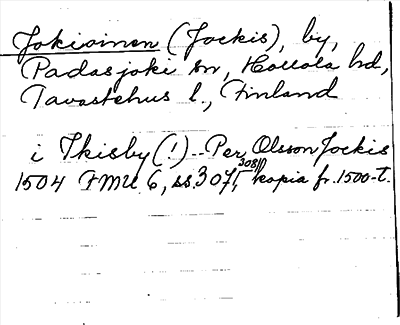 Jokioinen (Jockis), by,
Padasjoki sn, Hollola hd,
Tavastehus l., Finland
i Ikisby (!) -- Per Olsson Jockis
1504 FMU 6, ss. 307, 308(?) kopia fr. 1500-t.